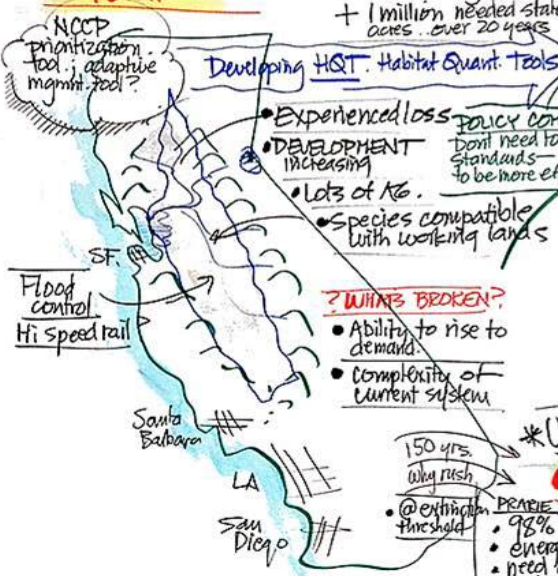 NCCP
prioritization
tool; adaptive
mgmnt. tool?
+ 1 million needed
acres.. over 20 years
Developing HQT. Habitat Quant. Tools
• Experienced loss
• DEVELOPMENT
increasing
• Lots of AG.
• Species compatible
with working lands
POLICY
Dont need to
standards—
to be more
SF.
Flood
control
Hi Speed rail
? WHAT'S BROKEN?
• Ability to rise to
demand.
• Complexity of
current system
Santa
Barbara
LA
San
Diego
150 yrs.
why rush
• @ extinction
threshold
PRARIE
• 98%
• need